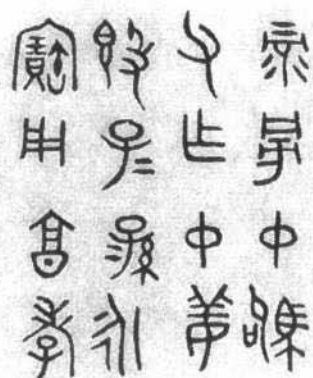 录旁中駒
父乍中姜
𣪘子=孫永
寶用享孝